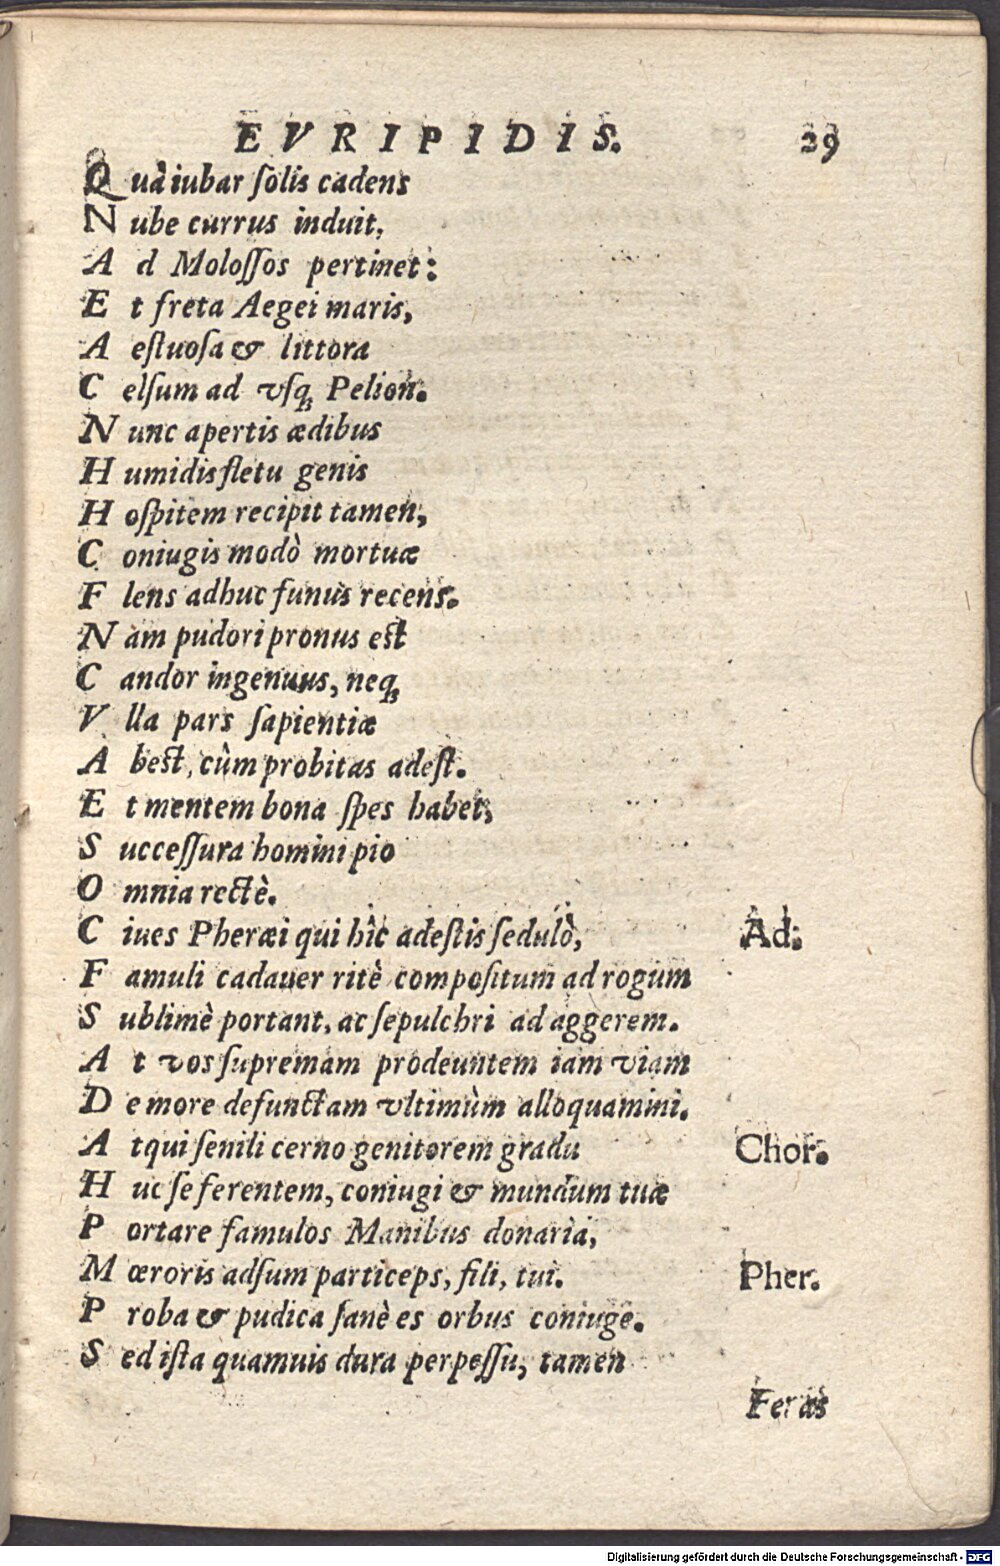 EVRIPIDIS. 29
Quà iubar ſolis cadens
Nube currus induit,
Ad Moloſſos pertinet:
Et freta Aegei maris,
Aeſtuoſa & littora
Celſum ad vſq; Pelion.
Nunc apertis ædibus
Humidis fletu genis
Hoſpitem recipit tamen,
Coniugis modò mortuæ
Flens adhuc funus recens.
Nam pudori pronus est
Candor ingenuus, neq;
Vlla pars ſapientiæ
Abest, cùm probitas adeſt.
Et mentem bona ſpes habet,
Succeſſura homini pio
Omnia rectè.
Ciues Pheræi qui hîc adeſtis ſedulò, Ad:
Famuli cadauer ritè compoſitum ad rogum
Sublimè portant, ac ſepulchri ad aggerem.
At vos ſupremam prodeuntem iam viam
De more defunctam vltimùm alloquamini.
Atqui ſenili cerno genitorem gradu Chor.
Huc ſe ferentem, coniugi & mundum tuæ
Portare famulos Manibus donaria,
Mœroris adſum particeps, fili, tui. Pher.
Proba & pudica ſanè es orbus coniuge.
Sed iſta quamuis dura perpeſſu, tamen
Feras
Digitalisierung gefördert durch die Deutsche Forschungsgemeinschaft - DFG